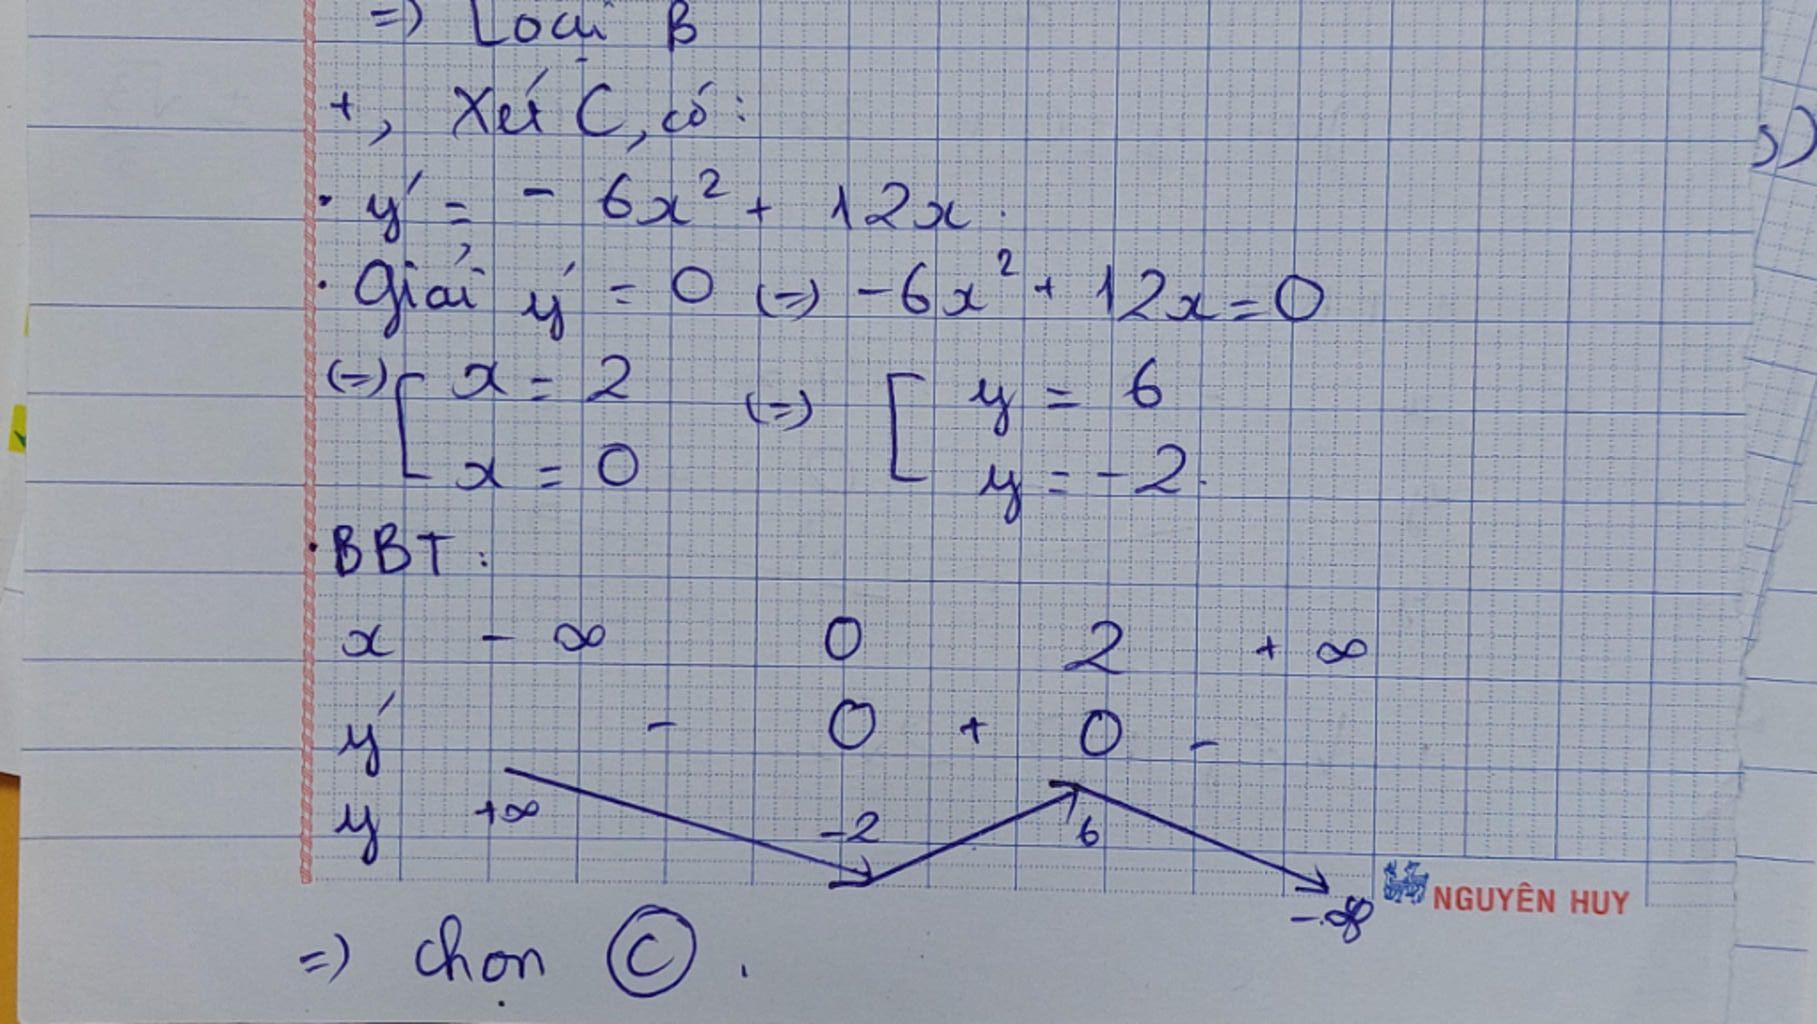 =) Loại B
+, Xét C, có:
• y' = - 6x² + 12x.
• Giải y' = 0 (=) -6x² + 12x = 0
(=) [ x = 2 (=) [ y = 6
x = 0 y = -2.
• BBT:
x - ∞ 0 2 + ∞
y' - 0 + 0 -
y +∞ -2 6 -∞
NGUYÊN HUY
=) chọn C.